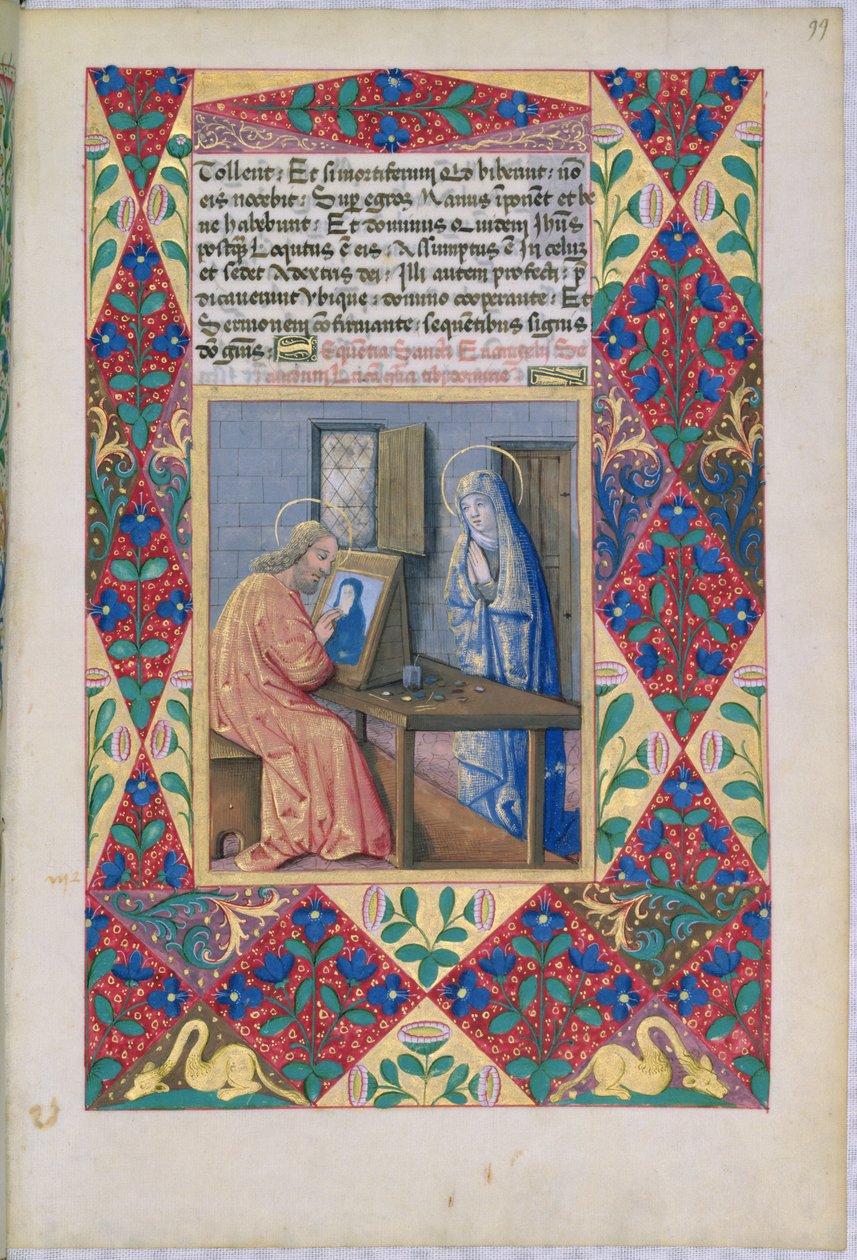 99
Tollent: Et si mortiferum qd biberint: nō
eis nocebit: Sup egros Manus īponent et be
ne habebunt: Et dominus Quidem Ihūs
postq̄ Loqutus ē eis: Assumptus ē In celum
et sedet A dextris dei: Illi autem profecti: p̄
dicaverunt Ubique: domino cooperante: Et
Sermonem cōfirmante: sequentibus signis
Sequentia Sancti Euangelij Se